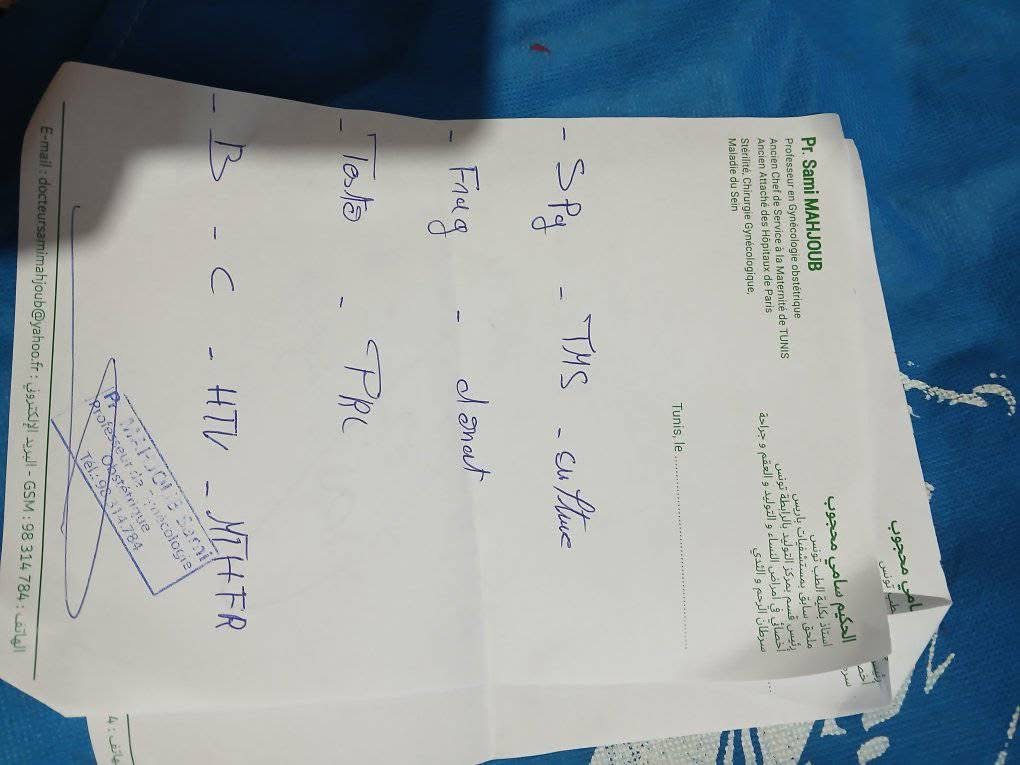 Pr. Sami MAHJOUB
Professeur en Gynécologie obstétrique
Ancien Chef de Service à la Maternité de TUNIS
Ancien Attaché des Hôpitaux de Paris
Stérilité, Chirurgie Gynécologique,
Maladie du Sein
الحكيم سامي محجوب
استاذ بكلية الطب تونس
ملحق سابق بمستشفيات باريس
رئيس قسم بمركز التوليد بالرابطة تونس
أخصائي في أمراض النساء و التوليد و العقم و جراحة
سرطان الرحم و الثدي
Tunis, le
- SPg - TMS - culture
- Frag - dénat
- Testo - PRL
- B - C - HIV - MTHFR
Pr MAHJOUB Sami
Professeur de Gynécologie
Obstétrique
Tél.: 98 314 784
E-mail : docteursamimahjoub@yahoo.fr : البريد الإلكتروني - GSM : 98 314 784 : الهاتف